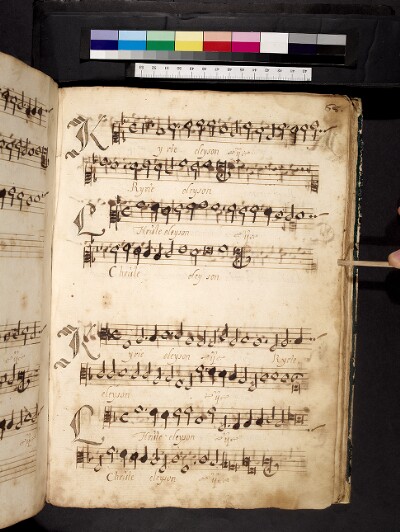 Kyrie eleyson ij
Kyrie eleyson
Christe eleyson ij
Christe eleyson
Kyrie eleyson ij Kyrie
eleyson ij
Christe eleyson ij
Christe eleyson ij